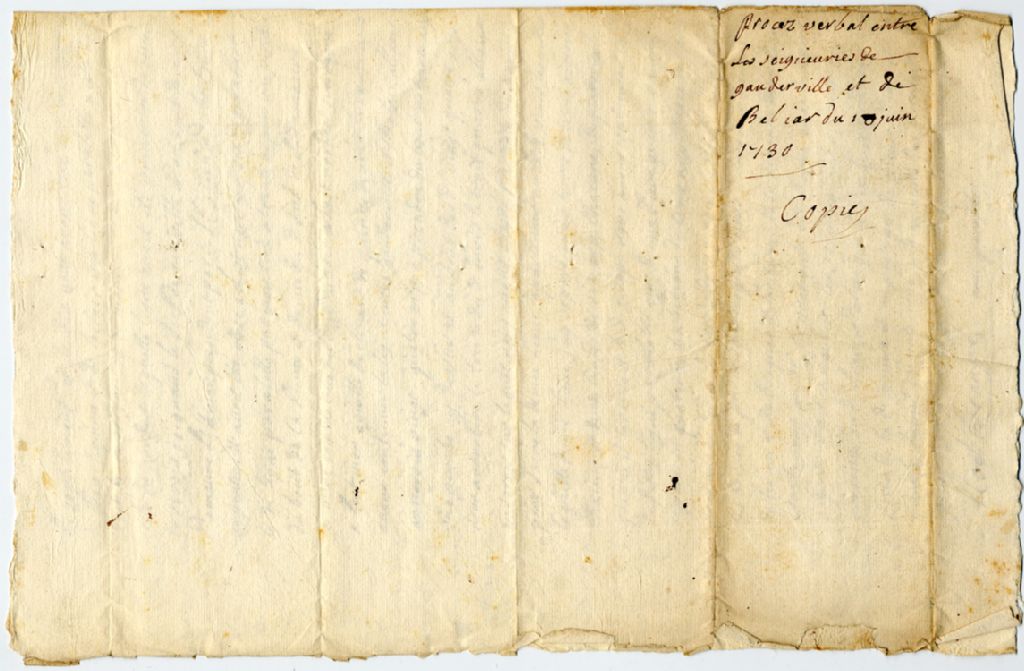 procez verbal entre
Les seigneuries de
ganderville et de
Beliar du juin
1730
Copie